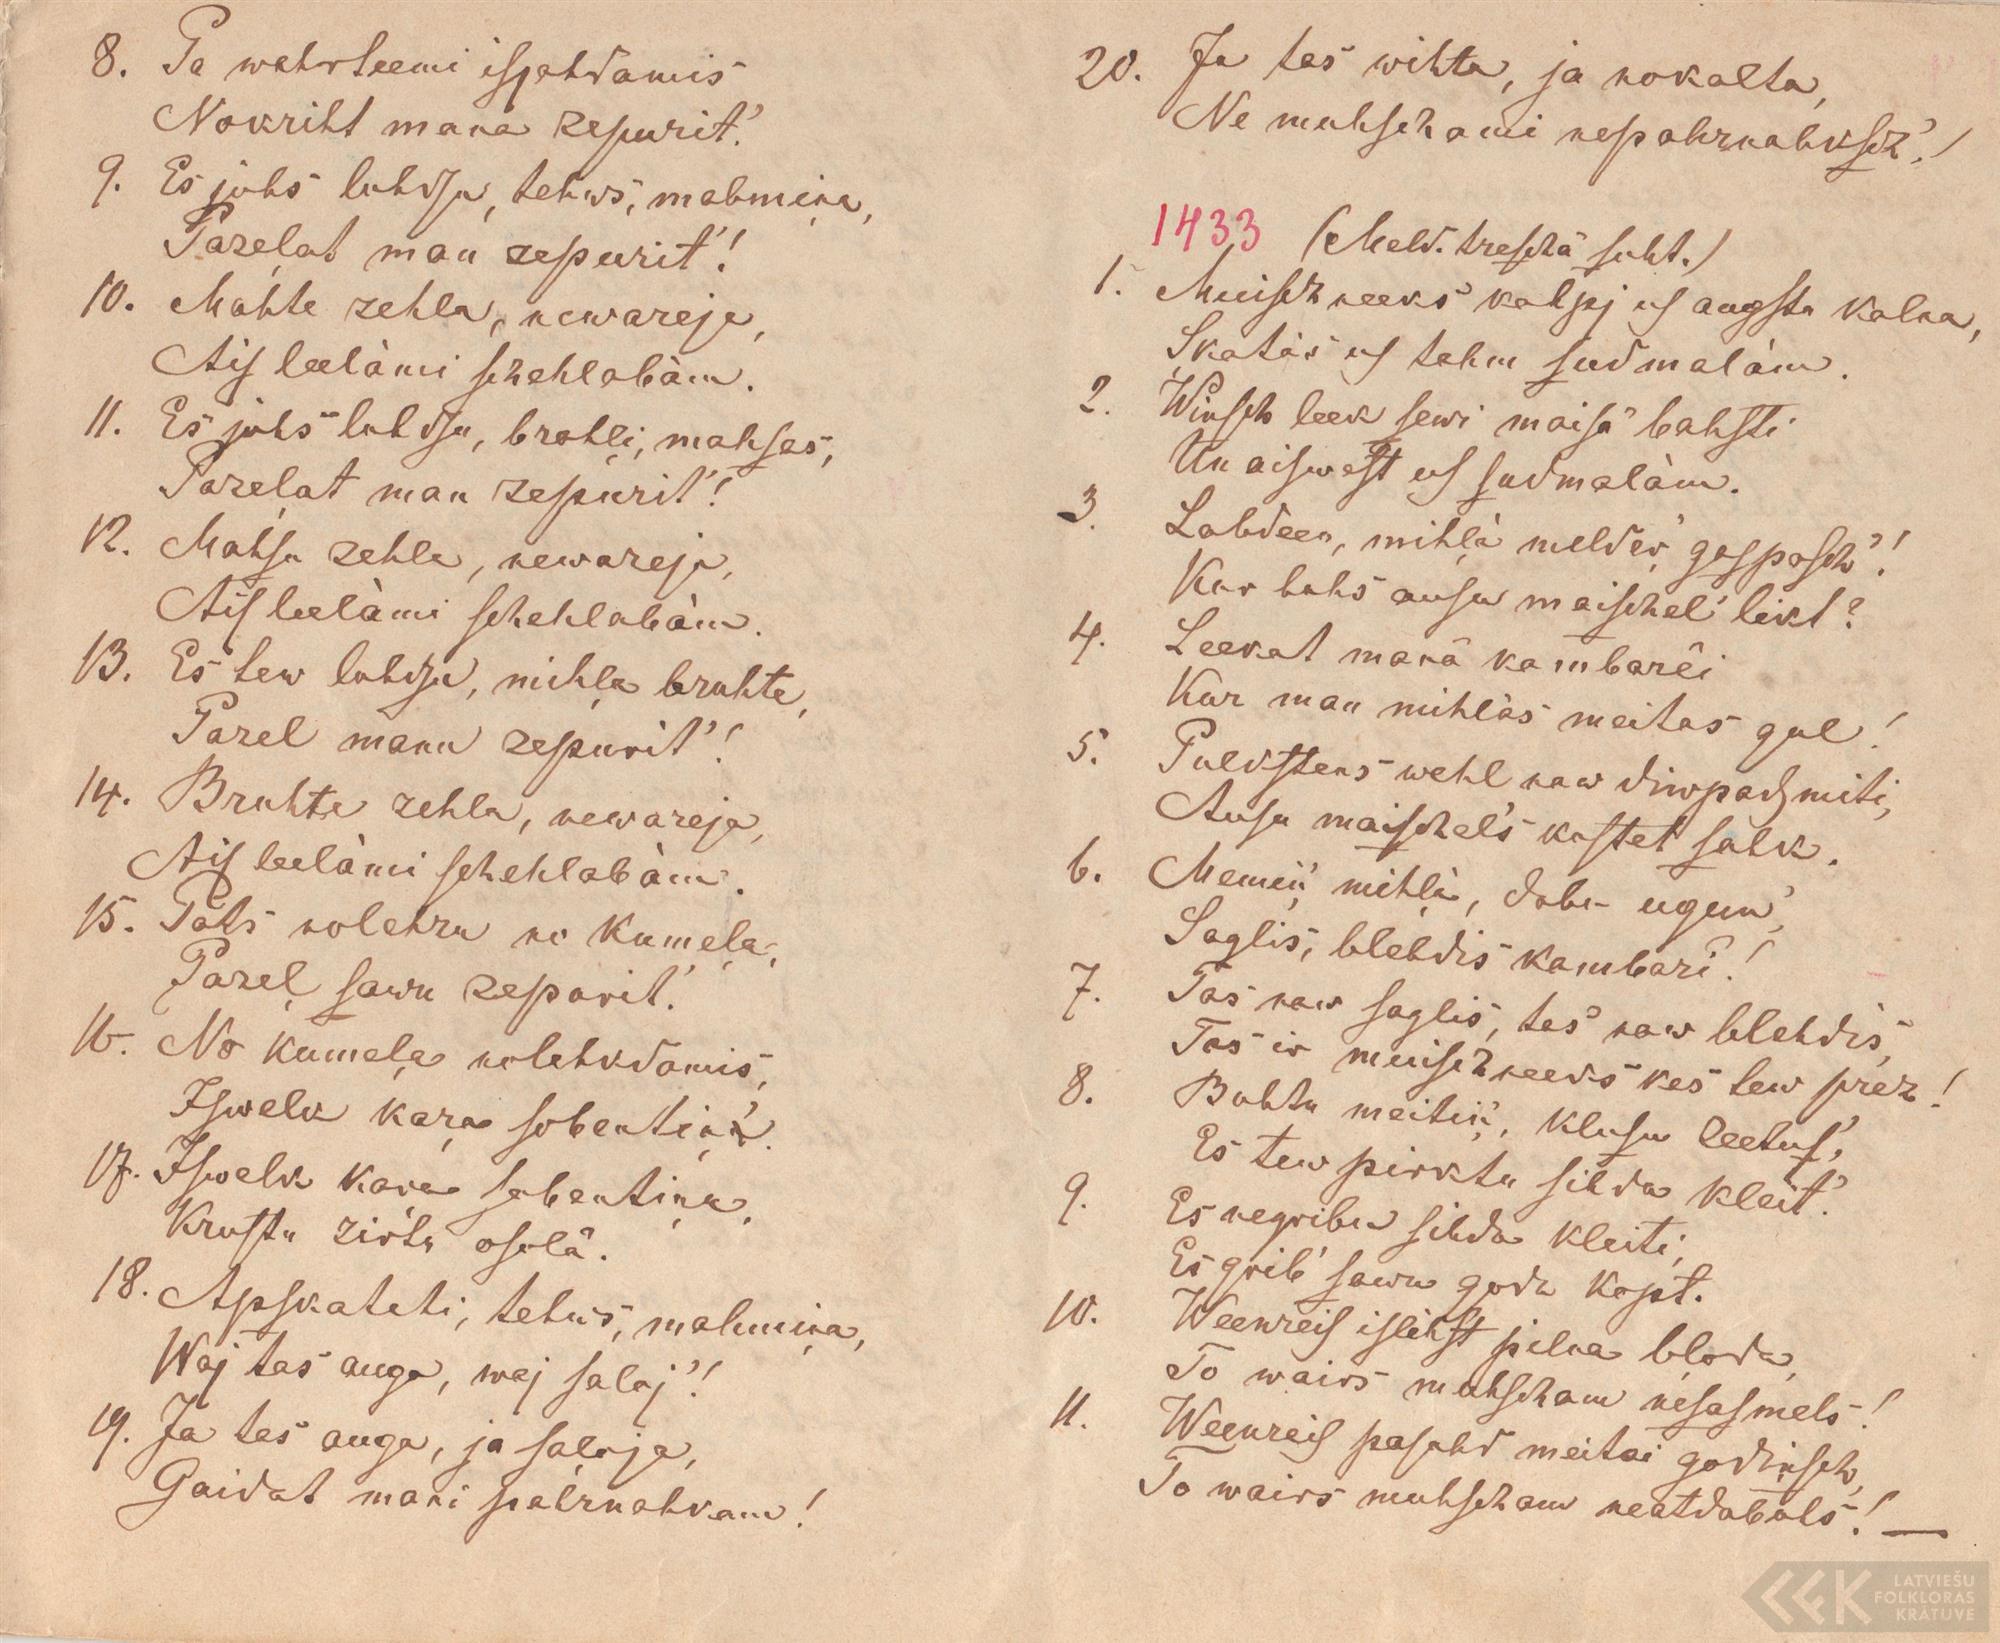 8. Pa wahrteemi isjahdamis
Nokriht mana zepurit'.
9. Es juhs luhdsu, tehws, mahmiņa,
Pazeļat man zepurit'!
10. Mahte zehla, newareja,
Ais leelàmi schehlabàm.
11. Es juhs luhdsu, brahļi, mahsas,
Pazeļat man zepurit'!
12. Mahsa zehla, newareja,
Ais leelàmi schehlabàm.
13. Es tew luhdsu, mihļa bruhte,
Pazel manu zepurit'!
14. Bruhte zehla, newareja,
Ais leelàmi schehlabàm.
15. Pats nolehzu no kumeļa,
Pazeļ sawu zepurit'.
16. No kumeļa nolehkdamis,
Iswelk kaŗa sobentiņ'.
17. Iswelk kaŗa sobentiņu,
Krustu zirtu osolā.
18. Apskatati, tehws, mahmiņa,
Waj tas auga, waj salaj'!
19. Ja tas auga, ja saļoja,
Gaidat mani pahrnahkam!
20. Ja tas wihta, ja nokalta,
Ne muhschami nepahrnahksch'!
1433 (Meld. treschā suht.)
1. Muischneeks kahpj us augstu kalnu,
Skatās us tahm sudmalàm.
2. Winsch leek sewi maisā bahsti
Un aiswest us sudmalàm.
3. Labdeen, mihļā melder' gaspasch'!
Kur buhs ausu maischel' likt?
4. Leekat manā kambarēi
Kur man mihlās meitas guļ!
5. Pulkstens wehl naw diwpadsmiti,
Ausu maischel's kustet sahk.
6. Memiņ' mihļā, dabu ugun',
Saglis, blehdis kambarī!
7. Tas naw saglis, tas naw blehdis,
Tas ir muischneeks kas tew prez!
8. Buhtu meitiņ', klusu zeetus',
Es tew pirktu sihda kleit'.
9. Es negribu sihda kleiti,
Es grib' sawu godu kopt.
10. Weenreis islihst pilna bloda,
To wairs muhscham nesasmels!
11. Weenreis pasuhd meitai godiņsch,
To wairs muhscham neatdabūs! —
LATVIEŠU
FOLKLORAS
KRĀTUVE